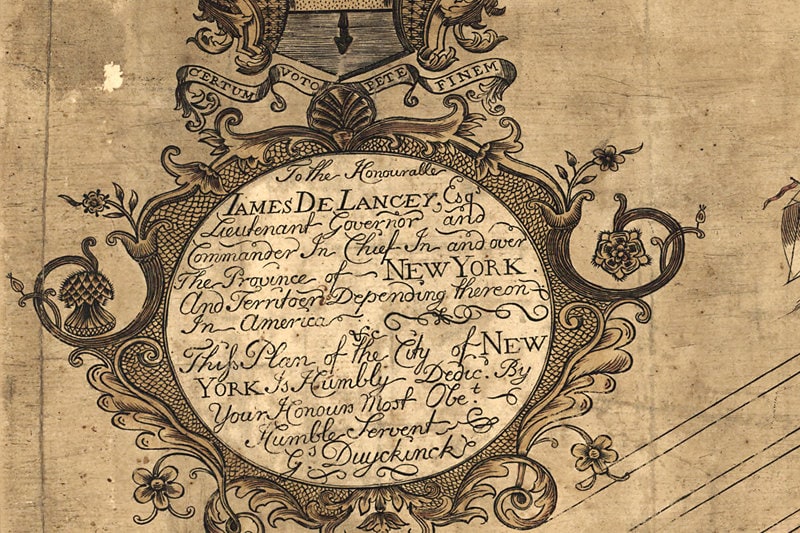 CERTUM VOTO PETE FINEM
To the Honourable
IAMES DE LANCEY, Esqr
Lieutenant Governor and
Commander In Chief In and over
The Province of NEW YORK.
And Territoers Depending thereon
In America &c
This Plan of the City of NEW
YORK Is Humbly Dedic. By
Your Honours Most Obet.
Humble Servent
Gs Duyckinck